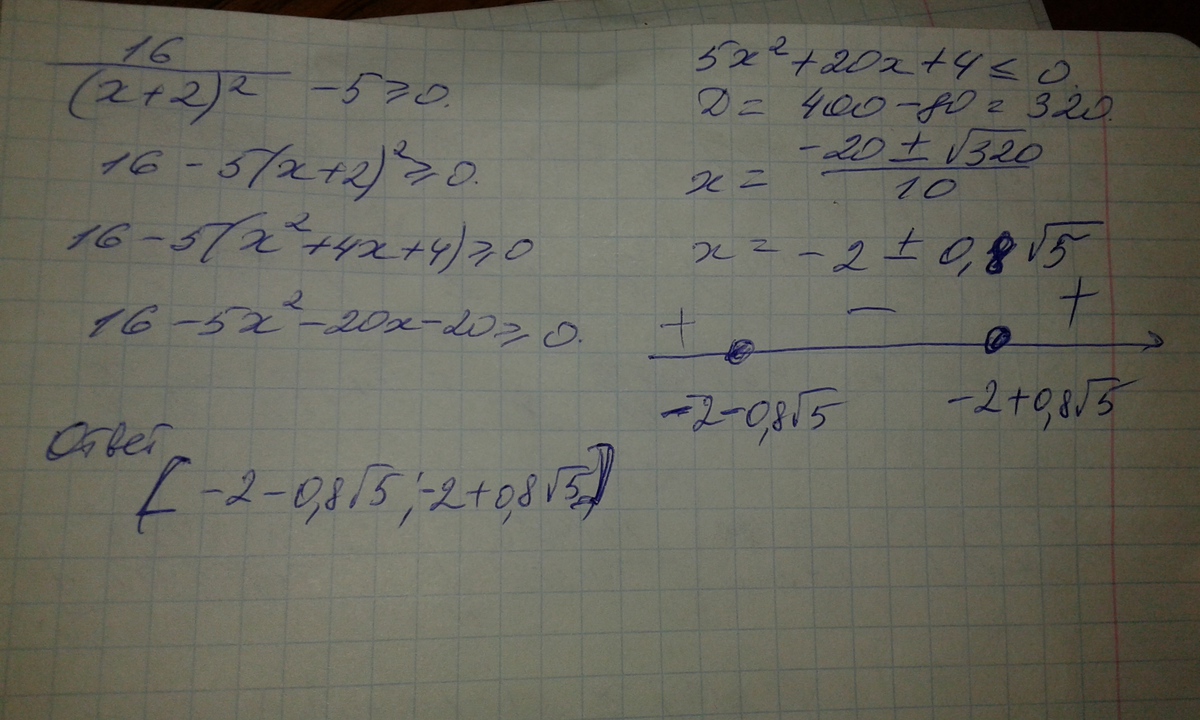 16/(x+2)² - 5 ≥ 0.
16 - 5(x+2)² ≥ 0.
16 - 5(x²+4x+4) ≥ 0
16 - 5x² - 20x - 20 ≥ 0.
5x² + 20x + 4 ≤ 0.
D = 400 - 80 = 320.
x = (-20 ± √320)/10
x = -2 ± 0,8√5
+ − +
-2-0,8√5 -2+0,8√5
Ответ
[-2-0,8√5; -2+0,8√5]